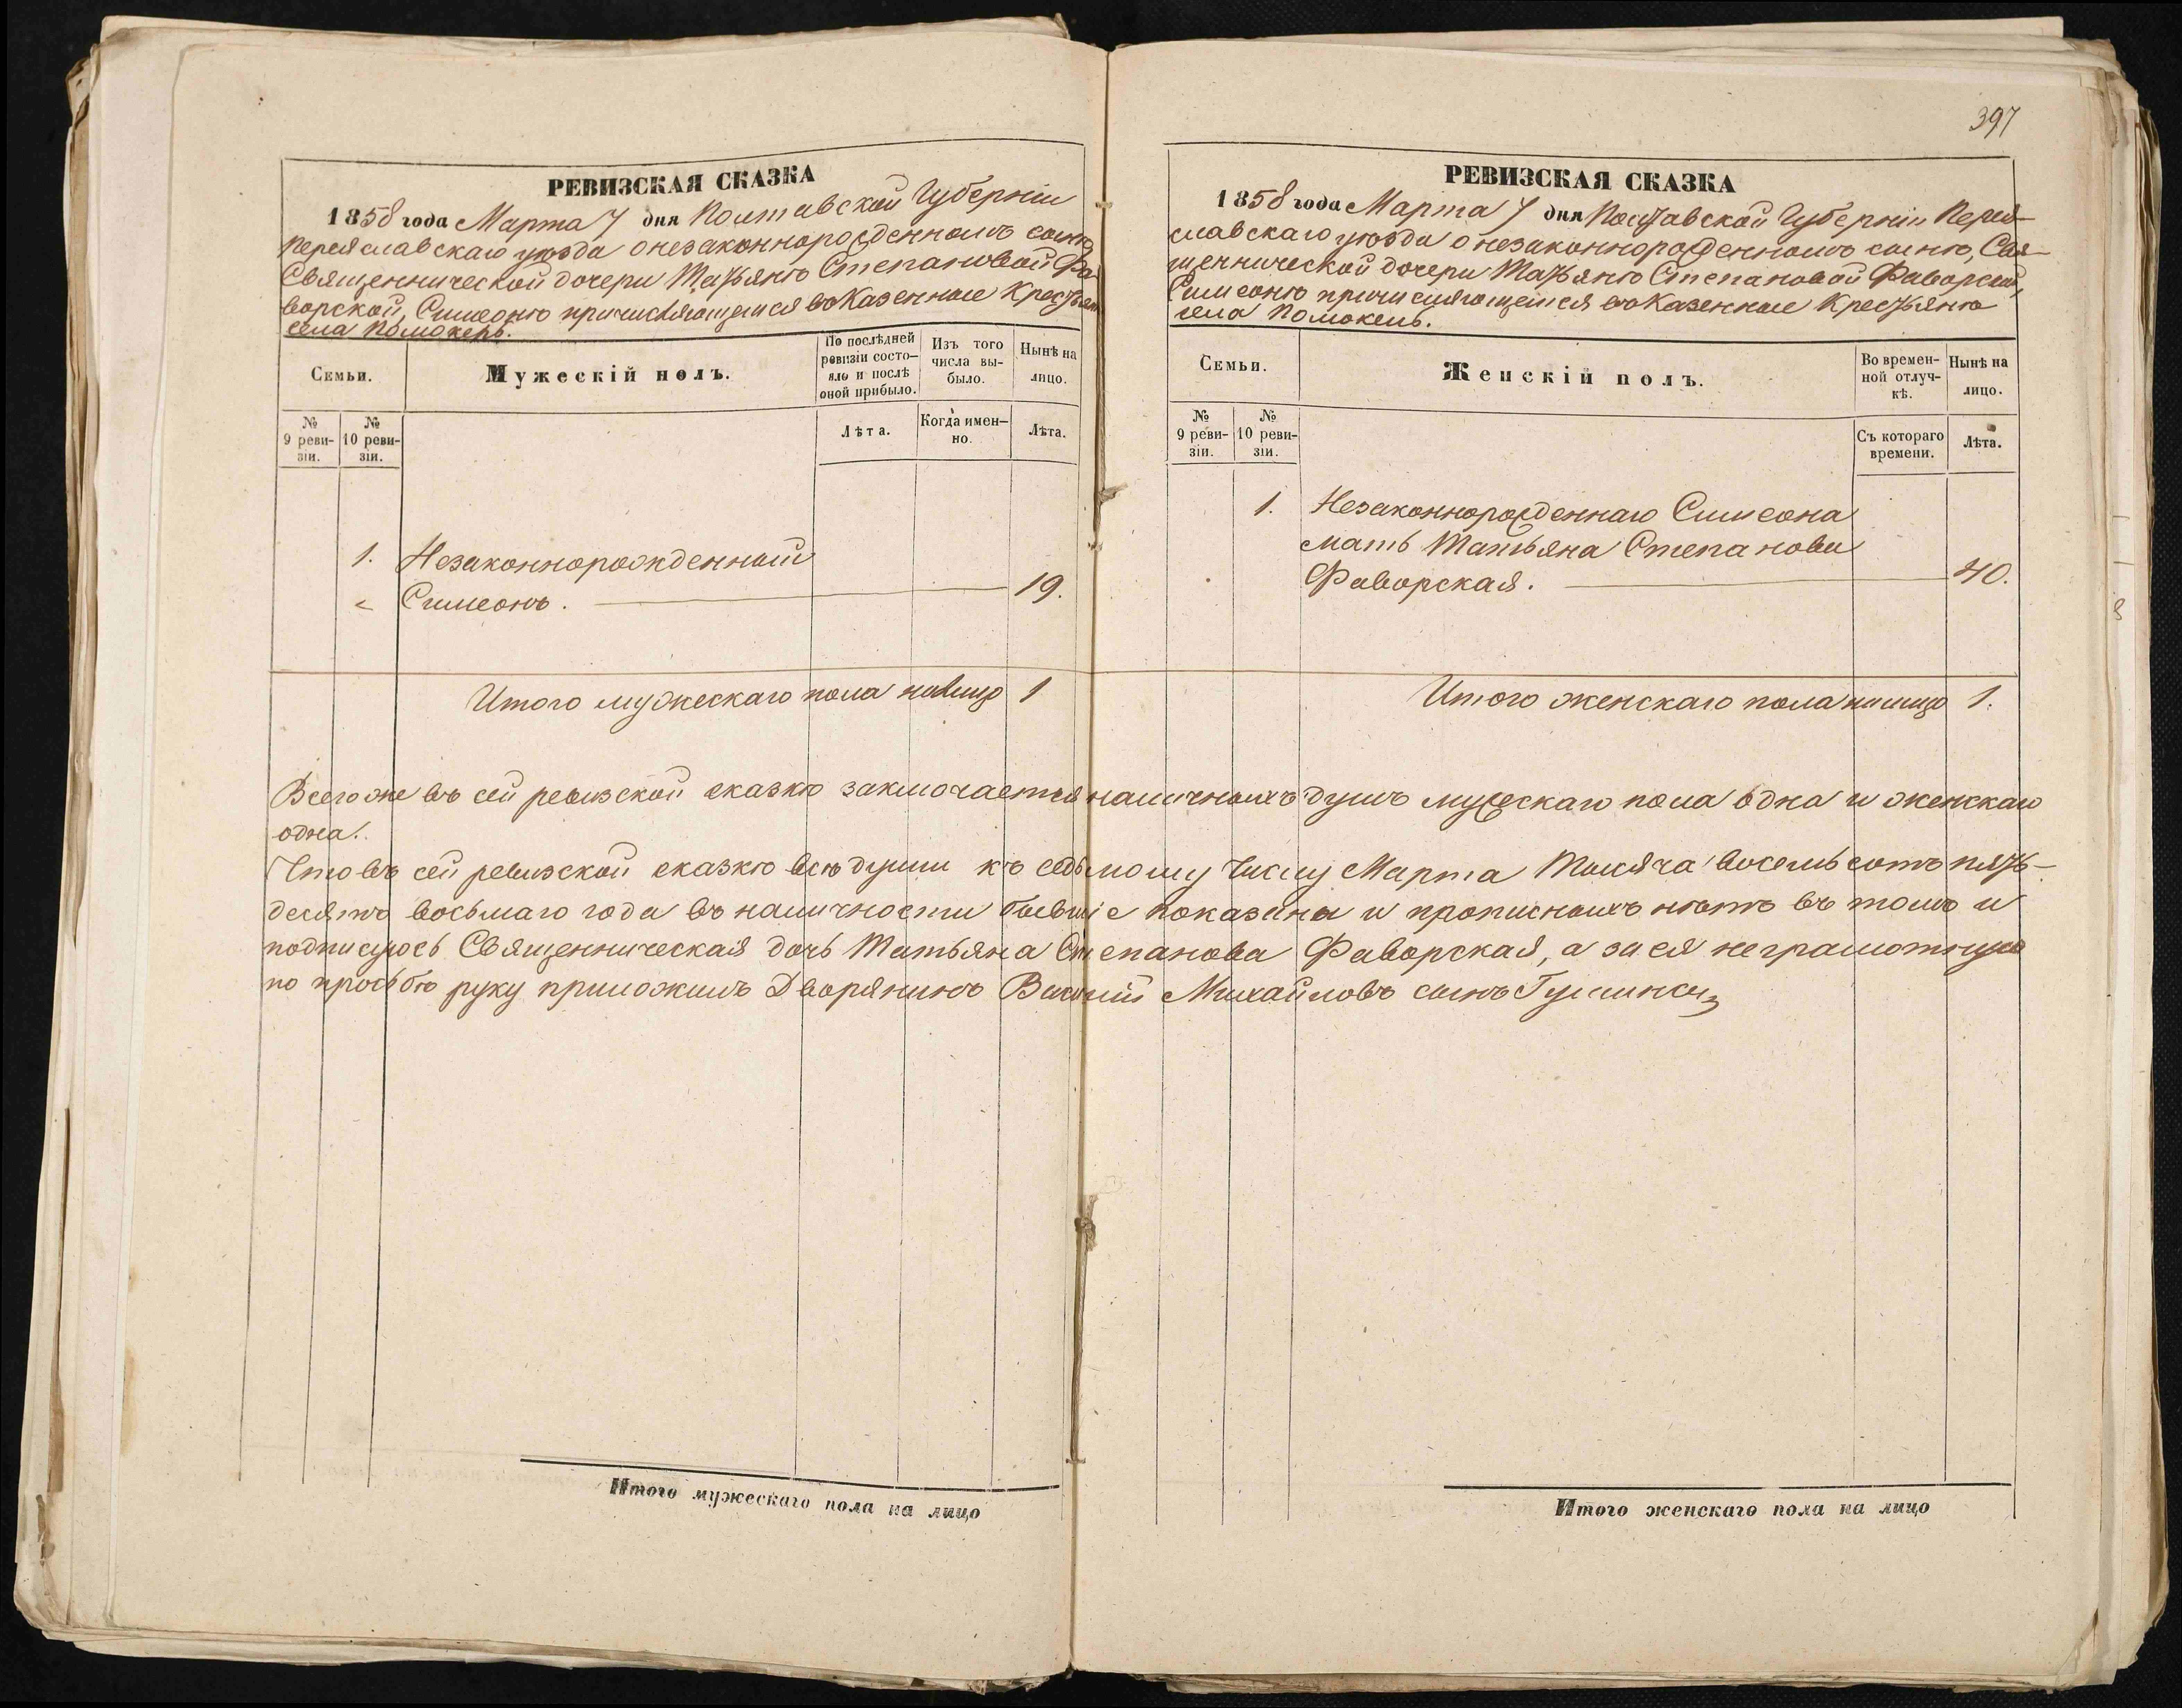 397
РЕВИЗСКАЯ СКАЗКА
1858 года Марта 7 дня Полтавской Губерніи
Переяславскаго уѣзда о незаконнорожденномъ сынѣ
Священнической дочери Татьянѣ Степановой Фа-
ворской, Симеонѣ причисляющемся въ Казенные Крестьян
села Помокель.
Семьи.
Мужескій полъ.
По послѣдней ревизіи состо-
яло и послѣ оной прибыло.
Изъ того числа вы-
было.
Нынѣ на лицо.
№ 9 реви-
зіи.
№ 10 реви-
зіи.
Лѣта.
Когда имен-
но.
Лѣта.
1. Незаконнорожденный
Симеонъ. 19.
Итого мужескаго пола налицо 1
РЕВИЗСКАЯ СКАЗКА
1858 года Марта 7 дня Полтавской Губерніи Перея-
славскаго уѣзда о незаконнорожденномъ сынѣ, Свя-
щеннической дочери Татьянѣ Степановой Фаворской,
Симеонѣ причисляющемся въ Казенные Крестьянѣ
села Помокель.
Семьи.
Женскій полъ.
Во времен-
ной отлуч-
кѣ.
Нынѣ на лицо.
№ 9 реви-
зіи.
№ 10 реви-
зіи.
Съ котораго времени.
Лѣта.
1. Незаконнорожденнаго Симеона
мать Татьяна Степанова
Фаворская. 40.
Итого женскаго пола налицо 1.
Всего же въ сей ревизской сказкѣ заключается наличныхъ душъ мужескаго пола одна и женскаго
одна.
Что въ сей ревизской сказкѣ всѣ души къ седьмому числу Марта Тысяча восемьсотъ пять-
десятъ восьмаго года въ наличности бывшіе показаны и прописныхъ нѣтъ въ томъ и
подписуюсь Священническая дочь Татьяна Степанова Фаворская, а за ея неграмотную
по просьбѣ руку приложилъ Дворянинъ Василій Михайловъ сынъ
Итого мужескаго пола на лицо
Итого женскаго пола на лицо